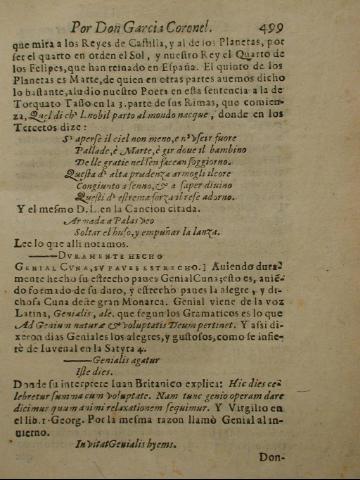 Por Don Garcia Coronel. 499
que mira a los Reyes de Castilla, y al de los Planetas, por
ser el quarto en orden el Sol, y nuestro Rey el Quarto de
los Felipes, que han reinado en España. El quinto de los
Planetas es Marte, de quien en otras partes auemos dicho
lo bastante, aludio nuestro Poeta en esta sentencia a la de
Torquato Tasso en la 3. parte de sus Rimas, que comien-
za, Quel di ch' L nobil parto al mondo nacque, donde en los
Tercetos dize:
S' aperse il ciel non meno, e n' vscir fuore
Pallade, è Marte, è gir doue il bambino
De lle gratie nel sen facean soggiorno.
Questa d' alta prudenza armogli il core
Congiunto a senno, & a saper diuino
Questi d' estrema forza il rese adorno.
Y el mesmo D.L. en la Cancion citada.
Ar nada a Palas veo
Soltar el huso, y empuñar la lanza.
Lee lo que alli notamos.
—DVRAMENTE HECHO
GENIAL CVNA, SV PAVES ESTRECHO.] Auiendo dura-
mente hecho su estrecho paues Genial Cuna; esto es, auié-
do formado de su duro, y estrecho paues la alegre, y di-
chosa Cuna deste gran Monarca. Genial viene de la voz
Latina, Genialis, ale. que segun los Gramaticos es lo que
Ad Genium naturæ & voluptatis Deum pertinet. Y assi di-
xeron dias Geniales los alegres, y gustosos, como se infie-
re de Iuuenal en la Satyra 4.
—Genialis agatur
Iste dies.
Donde su interprete Iuan Britanico explica: Hic dies ce-
lebretur summa cum voluptate. Nam tunc genio operam dare
dicimus quum animi relaxationem sequimur. Y Virgilio en
el lib. 1. Georg. Por la mesma razon llamò Genial al in-
uierno.
Inuitat Genialis hyems.
Don-